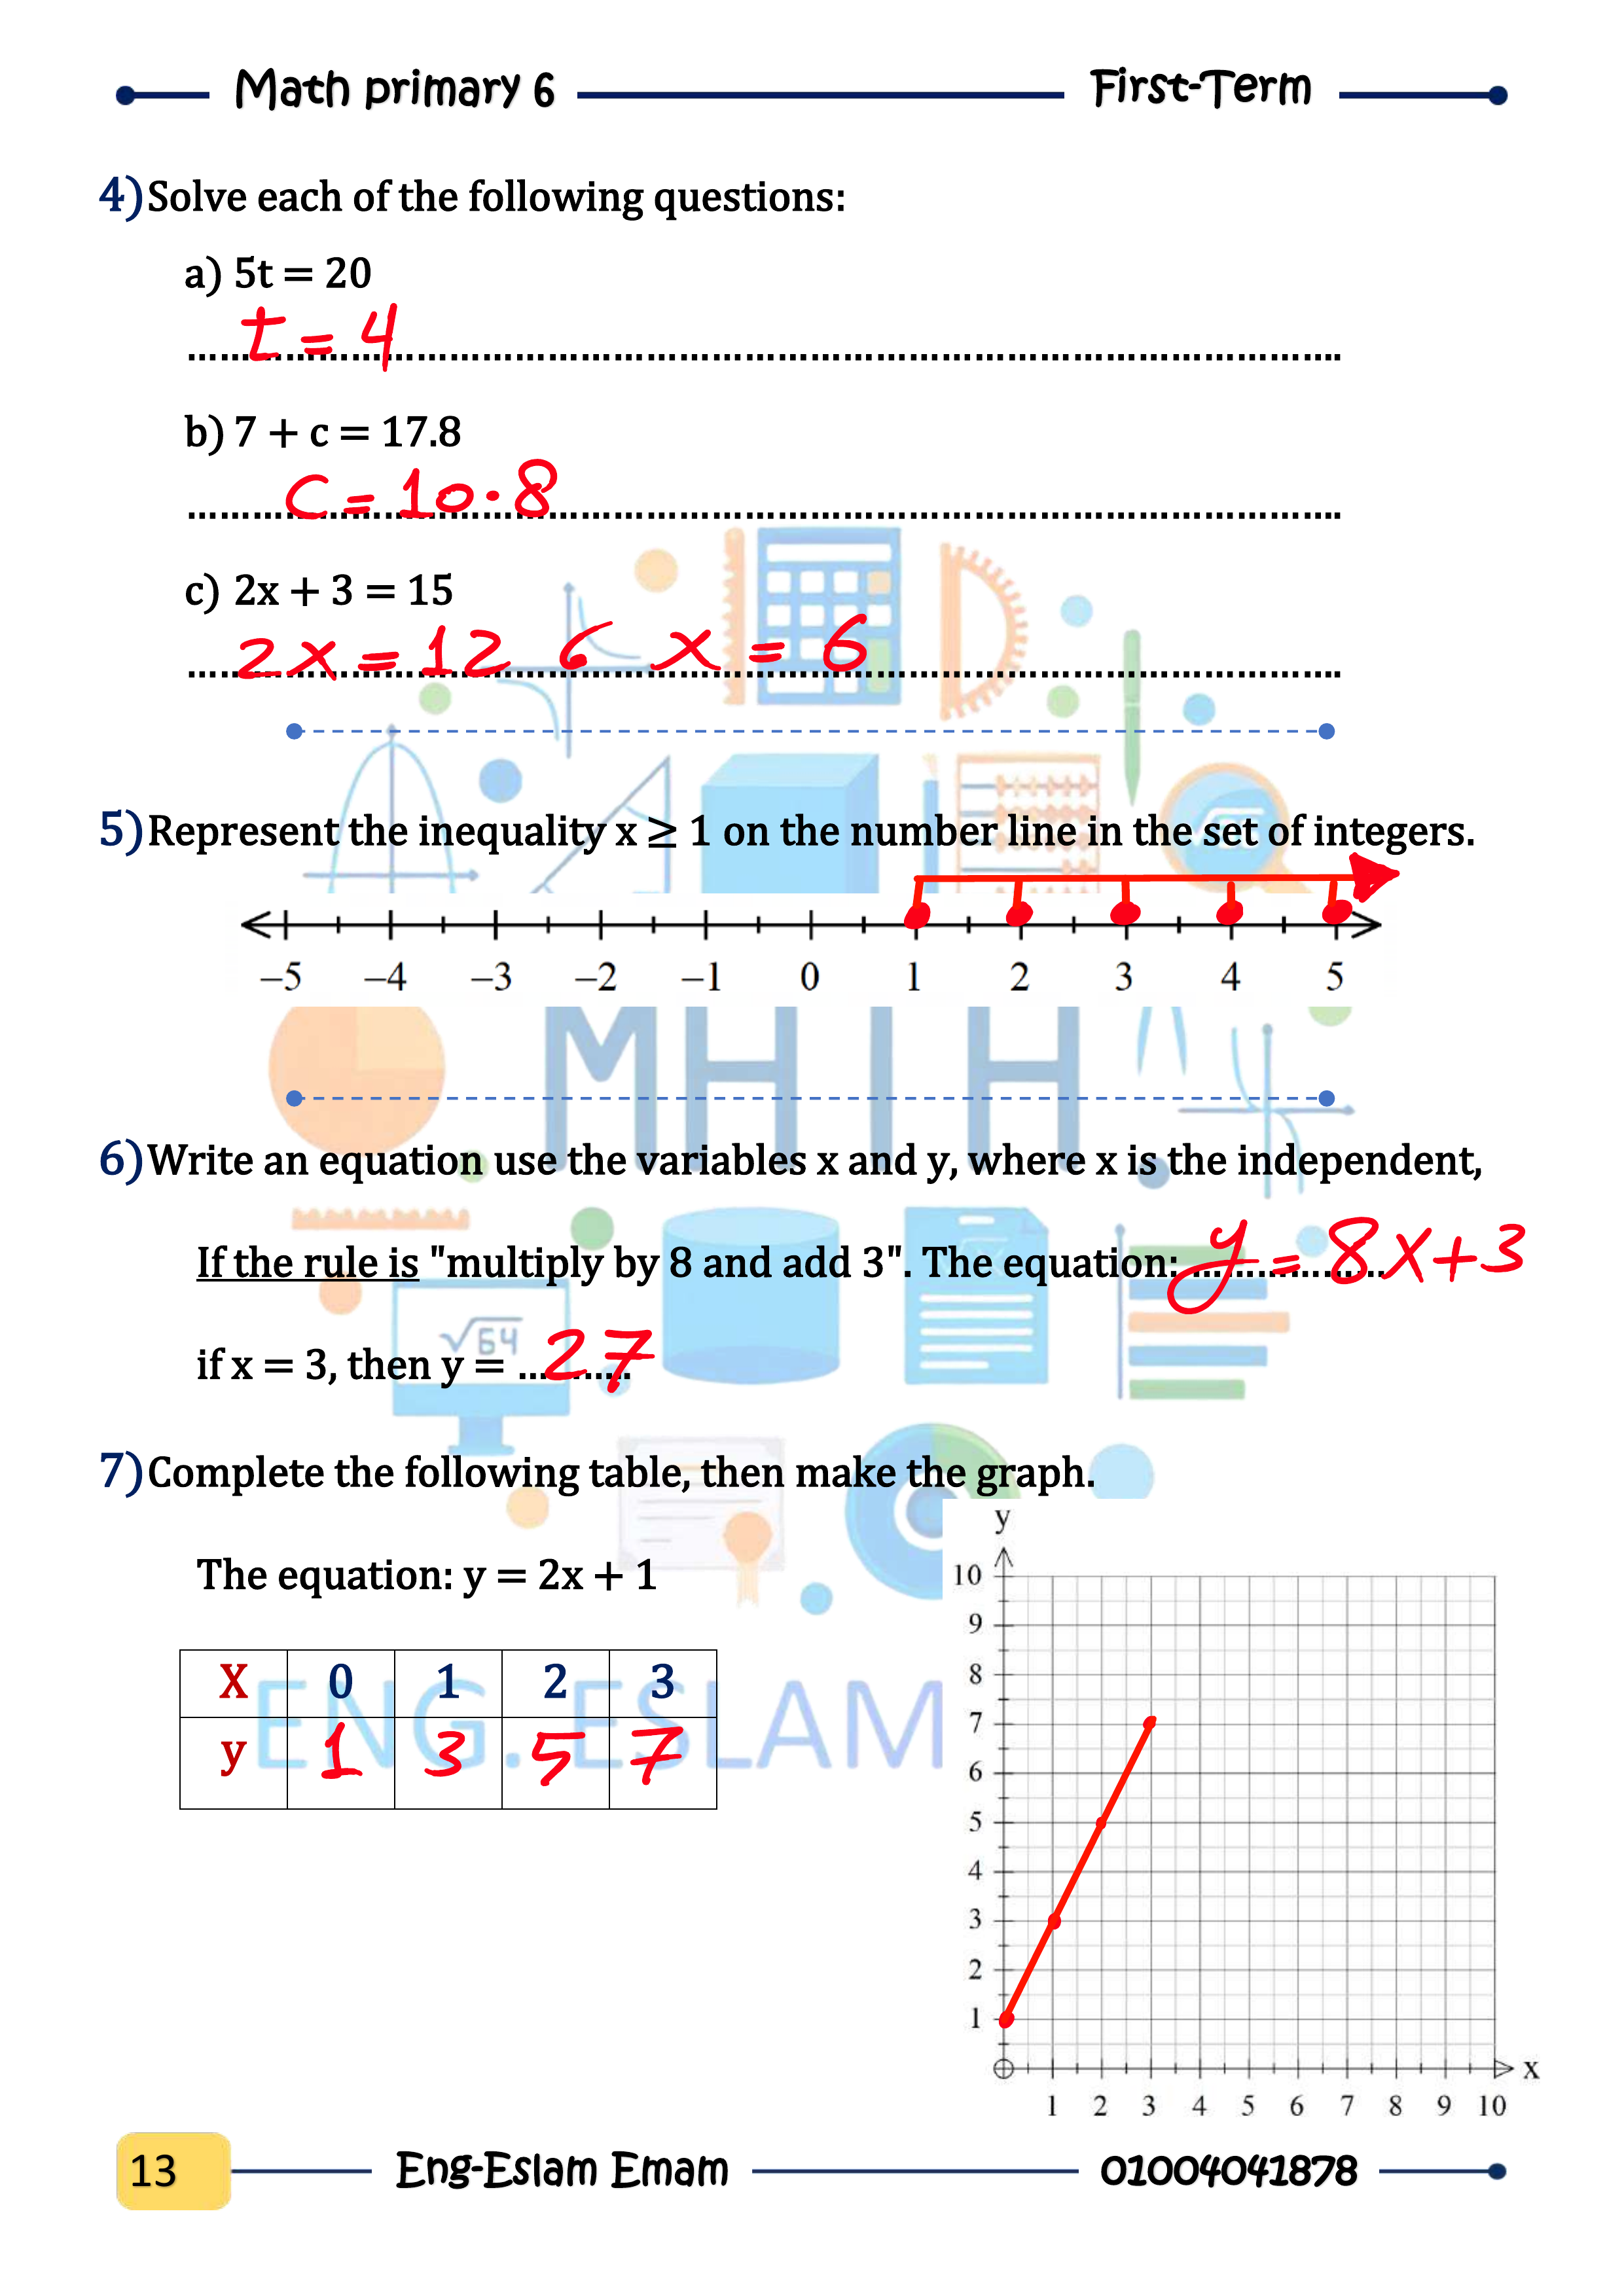 Math primary 6 First-Term
4) Solve each of the following questions:
a) 5t = 20
t = 4
b) 7 + c = 17.8
c = 10.8
c) 2x + 3 = 15
2x = 12 6 x = 6
5) Represent the inequality x ≥ 1 on the number line in the set of integers.
–5 –4 –3 –2 –1 0 1 2 3 4 5
MHTH
6) Write an equation use the variables x and y, where x is the independent,
If the rule is "multiply by 8 and add 3". The equation: y = 8x + 3
√64
if x = 3, then y = 27
7) Complete the following table, then make the graph.
The equation: y = 2x + 1
X 0 1 2 3
y 1 3 5 7
ENG. ESLAM
y
10
9
8
7
6
5
4
3
2
1
x
1 2 3 4 5 6 7 8 9 10
13 Eng-Eslam Emam 01004041878